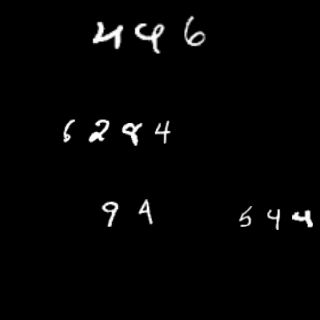 446
6284
94 544